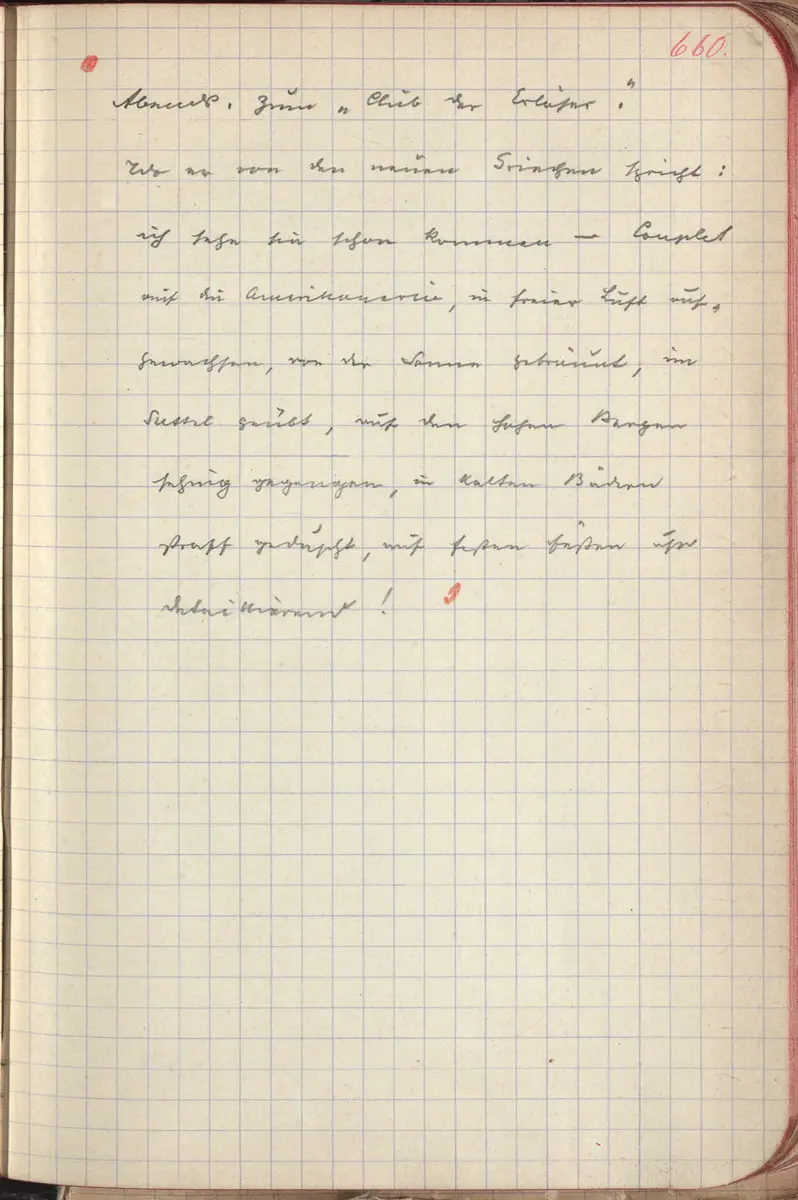 660.
Abends. Zum „Club der Erlöser."
Wo er von den neuen Griechen spricht:
ich sehe sie schon kommen — Couplet
auf die Amerikanerin, in freier Luft auf-
gewachsen, von der Sonne gebräunt, im
Sattel geübt, auf den hohen Bergen
sehnig gegangen, in kalten Bädern
straff geduscht, auf festen Füßen